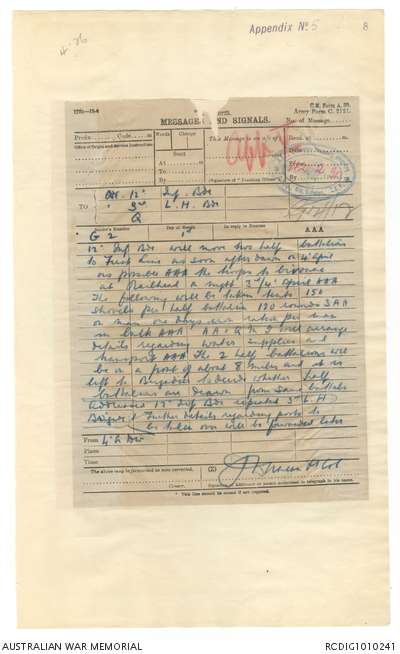 Appendix No 5
8
MESSAGES AND SIGNALS.
C.R. Form A. 29.
Army Form C. 2121.
No. of Message
Prefix Code m
Words Charge
This Message is on a/c of:
Recd. at m
Office of Origin and Service Instructions
Sent
Date
At m
From
To
By
(Signature of "Franking Officer")
By
App
TO
12th Inf. Bde
3rd L. H. Bde
Q
Sender's Number
Day of Month
In reply to Number
AAA
G 2
12th Inf Bde will move two half battalions
to Front Line as soon after dawn on 4th April
as possible AAA the troops to bivouac
at Railhead on night 3rd/4th April AAA
The following will be taken tents 150
shovels per half battalion 120 rounds SAA
on man one days
in bulk AAA AA & Q M G will arrange
details regarding water supplies and
transport AAA The 2 half battalions will
be on a front of about 8 miles and it is
left to Brigadier to decide whether half
battalions are drawn from same battalion
addressed 12th Inf Bde repeated 3rd L. H
Brigade Further details regarding posts to
be taken over will be forwarded later
From 4th A Div
Place
Time
The above may be forwarded as now corrected.
(Z)
Censor.
Signature of Addressor or person authorised to telegraph in his name.
* This line should be erased if not required.
AUSTRALIAN WAR MEMORIAL
RCDIG1010241